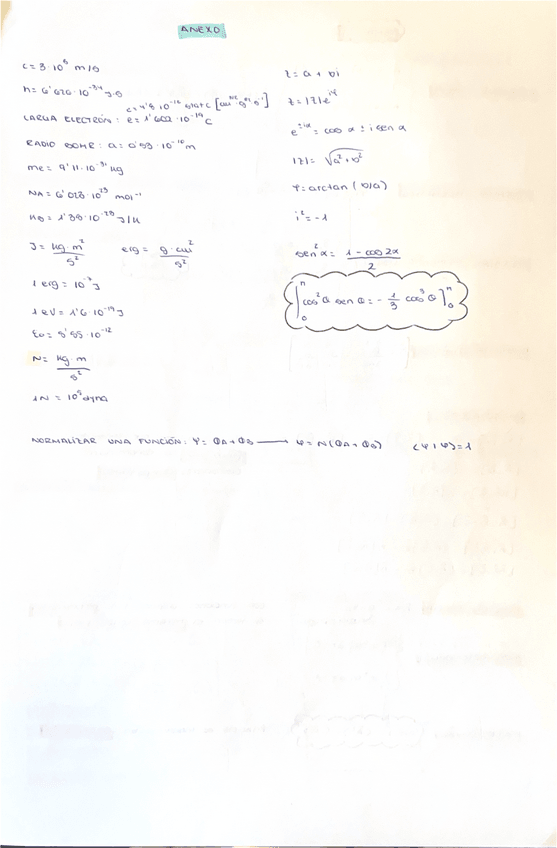 ANEXO
c = 3·10⁸ m/s
h = 6'626·10⁻³⁴ J·s
e = 4'8·10⁻¹⁰ statC [cm^3/2·g^1/2·s⁻¹]
CARGA ELECTRÓN: e = 1'602·10⁻¹⁹ C
RADIO BOHR: a = 0'53·10⁻¹⁰ m
me = 9'11·10⁻³¹ kg
NA = 6'023·10²³ mol⁻¹
KB = 1'38·10⁻²³ J/K
J = kg·m²/s² erg = g·cm²/s²
1 erg = 10⁻⁷ J
1 eV = 1'6·10⁻¹⁹ J
ε₀ = 8'85·10⁻¹²
N = kg·m/s²
1N = 10⁵ dyna
z = a + bi
z = |z|e^iφ
e^±iα = cos α ± i sen α
|z| = √(a² + b²)
φ = arctan (b/a)
i² = -1
sen²α = (1 - cos 2α)/2
∫₀^π cos²θ sen θ = - 1/3 cos³θ]₀^π
NORMALIZAR UNA FUNCIÓN: Ψ = ΦA + ΦB ⟶ Ψ = N(ΦA + ΦB) ⟨Ψ|Ψ⟩ = 1